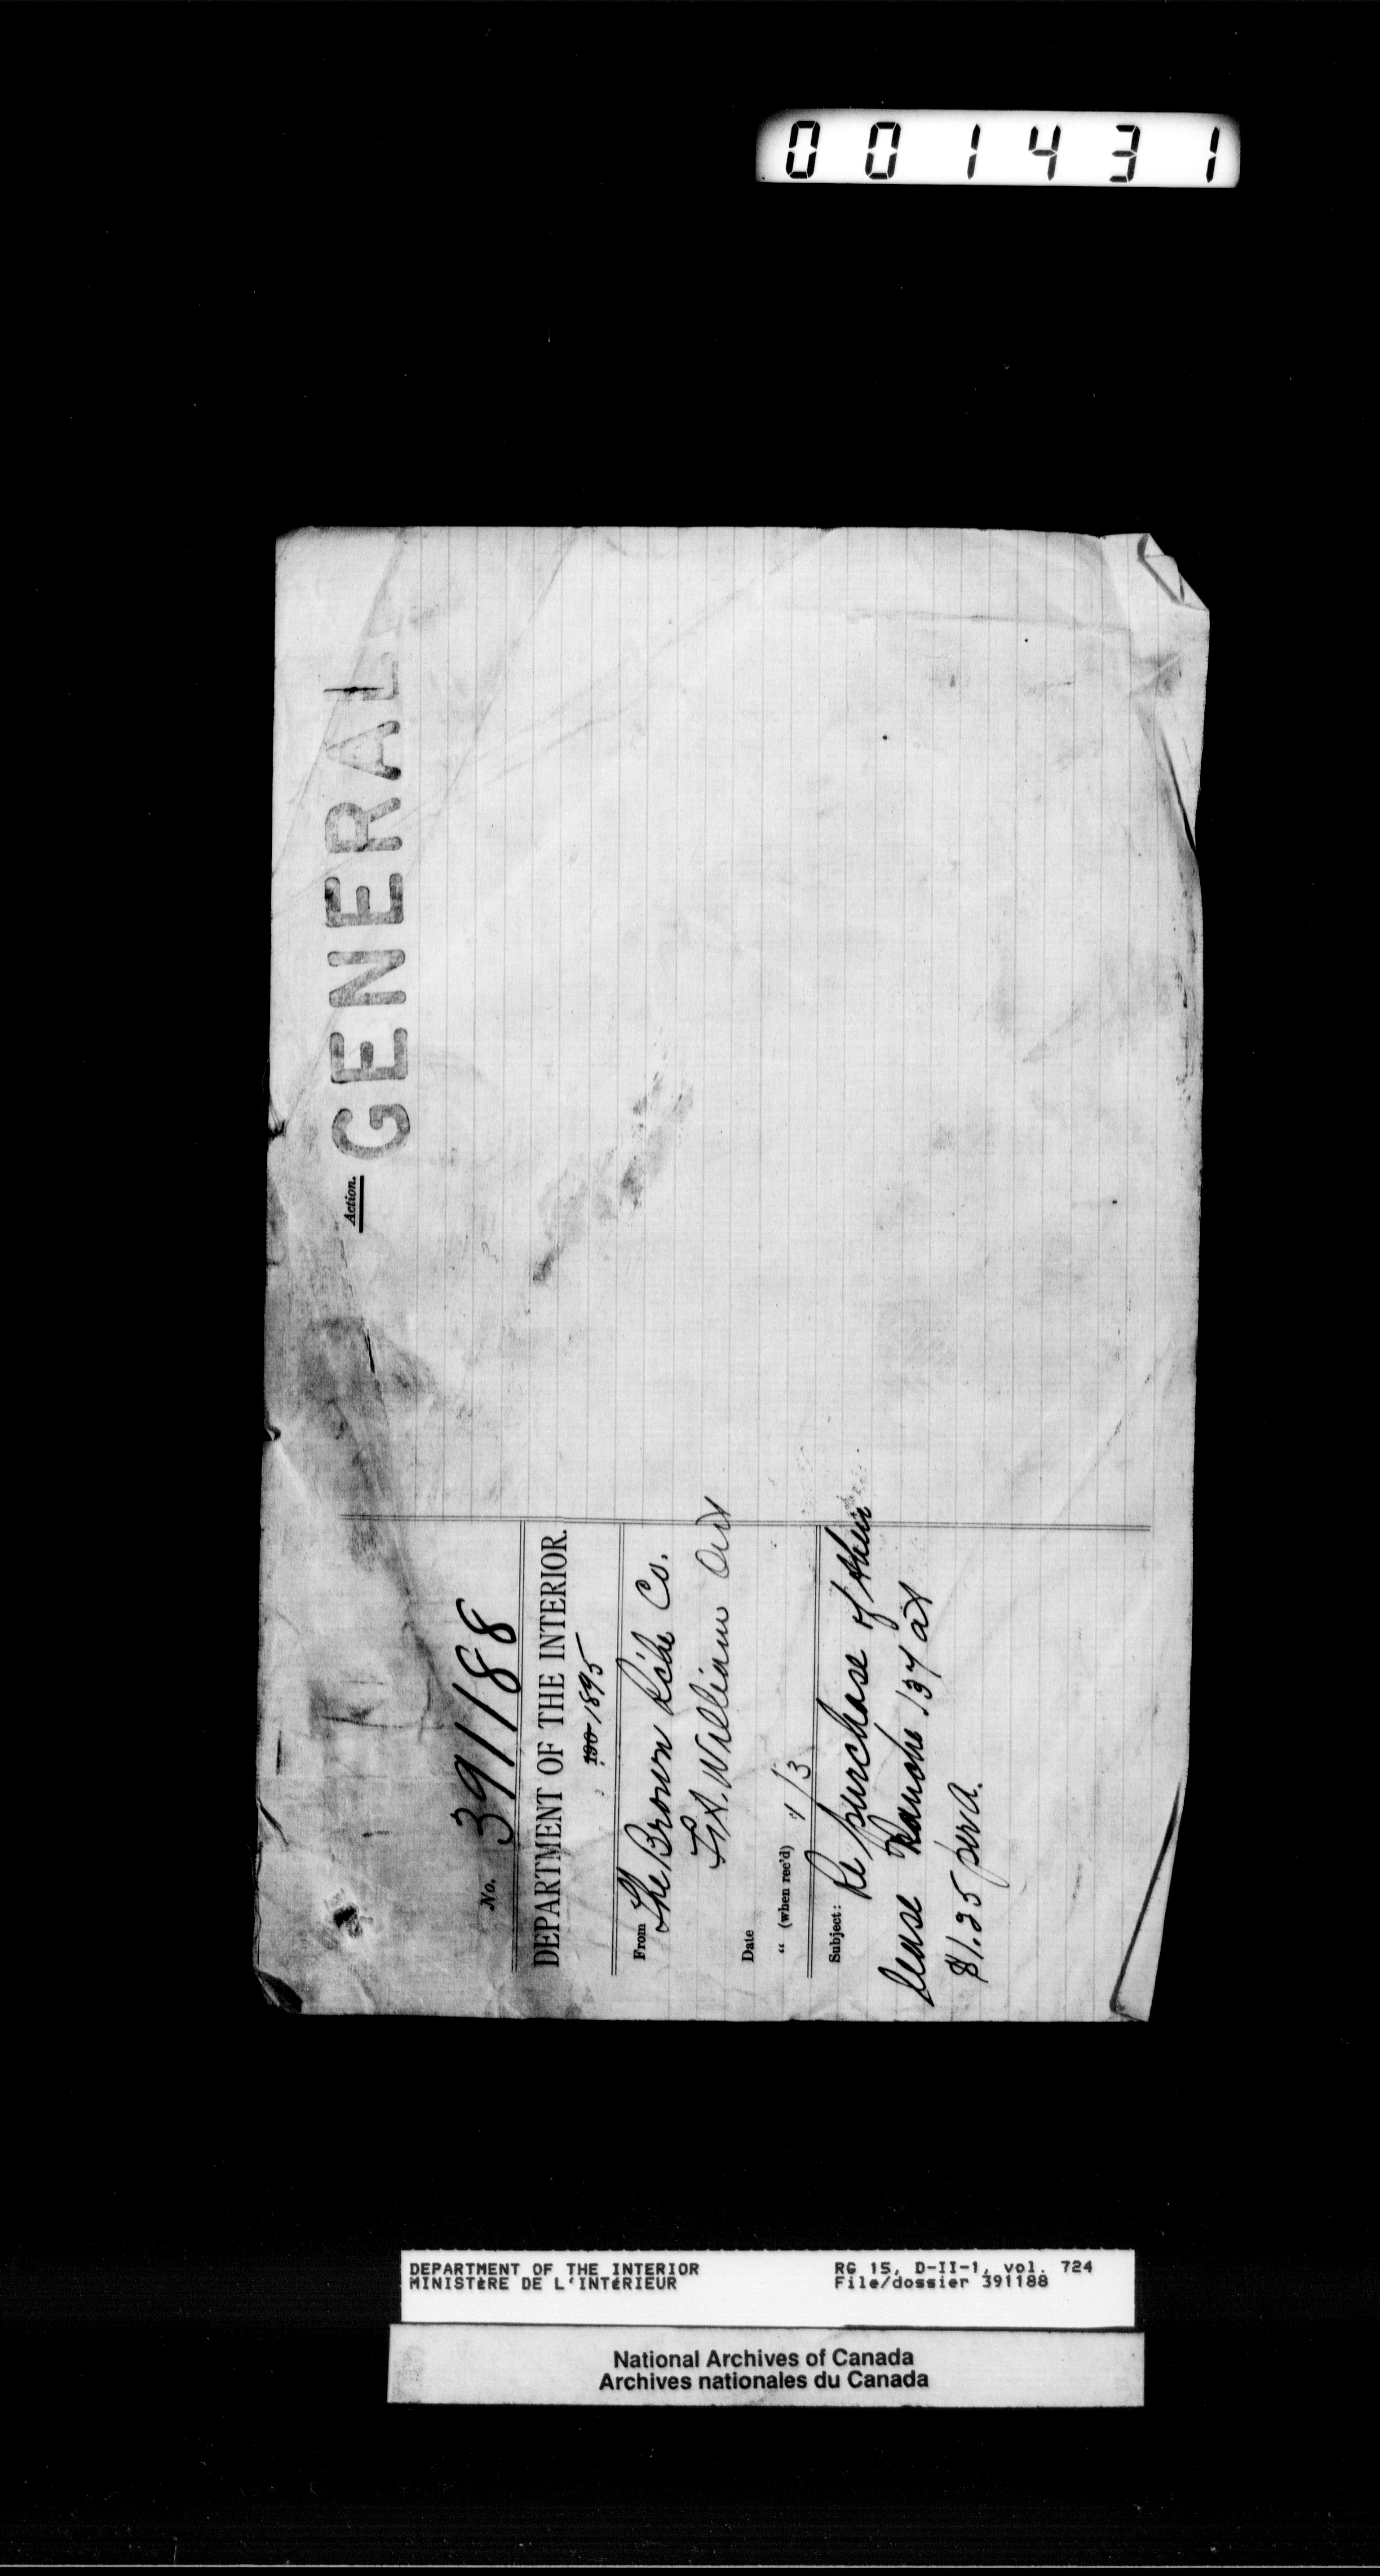 001431
Action.
GENERAL
No. 391188
DEPARTMENT OF THE INTERIOR.
190 1895
From The Brown R'che Co.
Ft. William Ont
Date
" (when rec'd) 1/3
Subject: Re purchase of their
lease Ranche 137 at
$1.25 per A.
DEPARTMENT OF THE INTERIOR
MINISTÈRE DE L'INTÉRIEUR
RG 15, D-II-1, vol. 724
File/dossier 391188
National Archives of Canada
Archives nationales du Canada